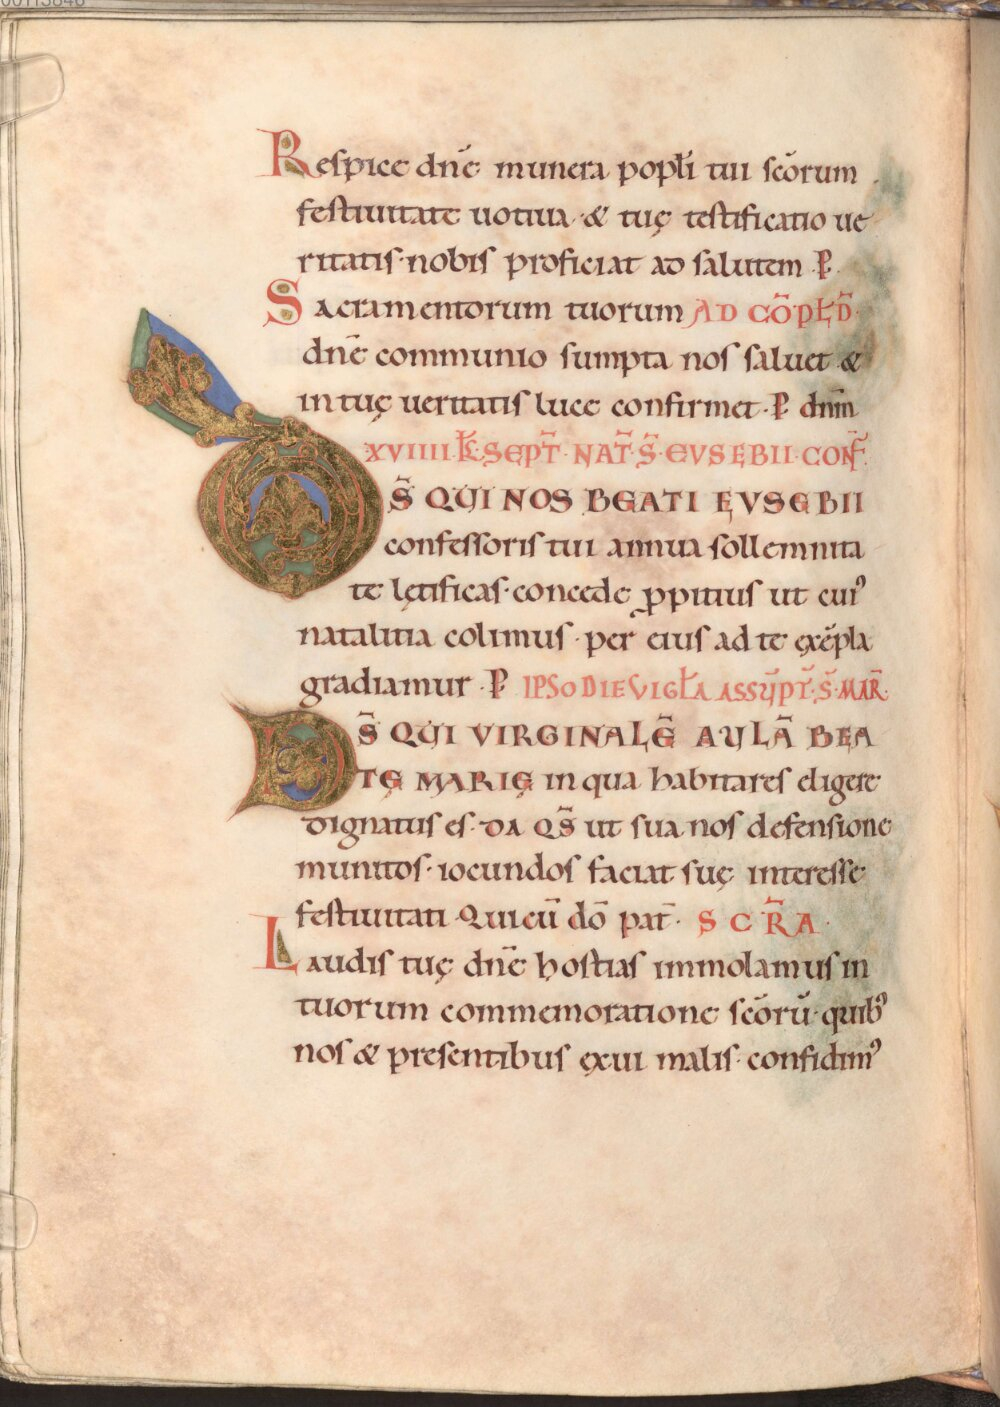 Respice dnē munera popłi tui scōrum
festiuitate uotiua · & tuę testificatio ue
ritatis · nobis proficiat ad salutem · P̄ ·
Sacramentorum tuorum AD CŌPŁD̄ ·
dnē communio sumpta nos saluet &
in tuę ueritatis luce confirmet · P̄ dnm̄
XVIIII · KŁ · SEPT̄ · NAT̄ · S̄ · EVSEBII · CONF̄ ·
DS̄ QUI NOS BEATI EVSEBII
confessoris tui annua sollemnita
te lętificas · concede ꝓpitius ut cuiꝰ
natalitia colimus · per eius ad te exēpla
gradiamur · P̄ IPSO DIE VIGŁA ASSŪPT̄ · S̄ · MAR̄ ·
DS̄ QUI VIRGINALĒ AULĀ BEA
TĘ MARIĘ in qua habitares eligere
dignatus es · DA QS̄ ut sua nos defensione
munitos · iocundos faciat suę interesse
festiuitati · Qui cū dō pat̄ · SCR̄A ·
Laudis tuę dnē hostias immolamus in
tuorum commemoratione scōrū · quibꝰ
nos & presentibus exui malis · confidimꝰ